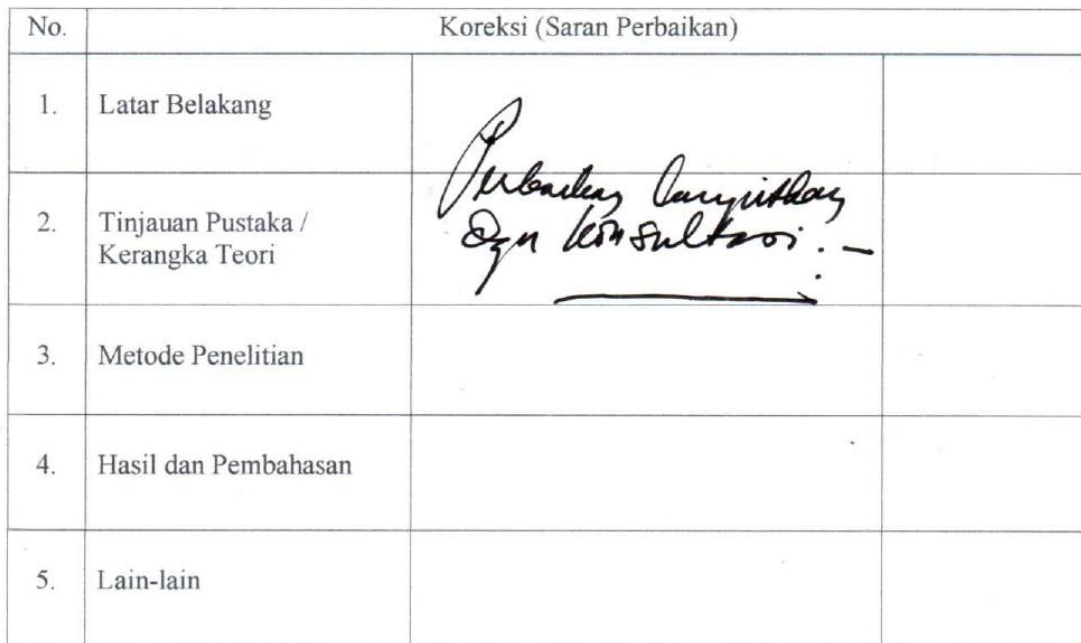 No. Koreksi (Saran Perbaikan)
1. Latar Belakang
Perbaikan lanjutkan
2. Tinjauan Pustaka /
Kerangka Teori
Dgn Konsultasi. -
3. Metode Penelitian
4. Hasil dan Pembahasan
5. Lain-lain